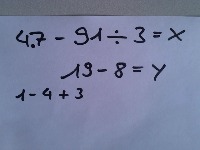 4.7 - 91 ÷ 3 = X
19 - 8 = Y
1 - 4 + 3